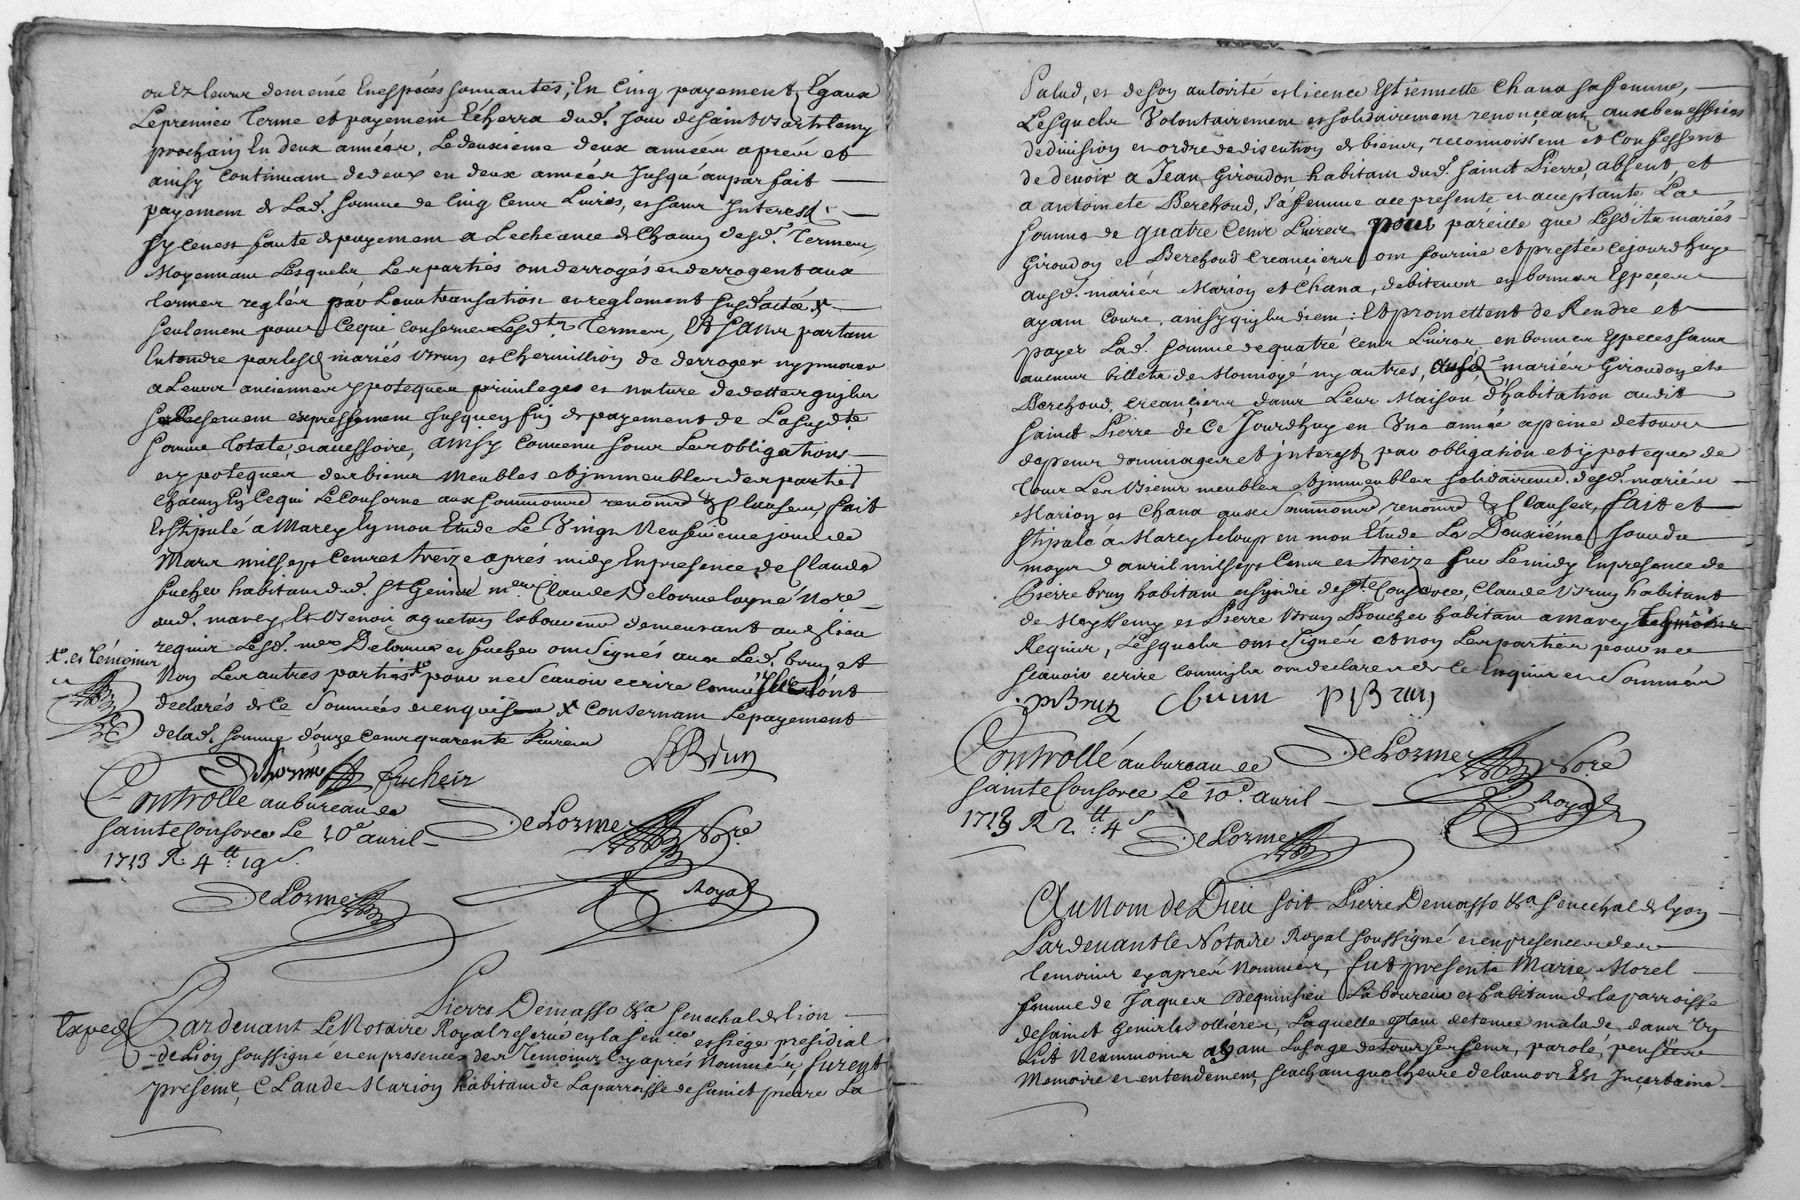 payement Egaux
Le premier Terme et payement Echerra dud. Jour de saint Barthelemy
prochain En deux années, Le deuxieme deux années aprés et
ainsy Continuant de deux en deux années Jusqu'au parfait
payement de Lad. somme de Cinq Cens Livres, et sans Interest
faute de payement a Lecheance de Chacun desd. Termes,
Moyennant Lesquels Les parties ont derrogés et derrogent aux
termes reglés par Leur transation et reglement susdattée
seulement pour Ce qui Conserne Lesdts Termes, Et sans partant
Entendre par lesd mariés Brun et Chermillion de derroger ny innover
a Leurs anciennes ypoteques privileges et nature de dette
expressement Jusques en fin de payement de La susdte
somme totale et accessoire, ainsy Convenu sous Les obligations
et ypoteques des biens Meubles et immeubles des parties
Chacun En Ce qui Le Conserne aux soummond renond & Clauses, fait
Et stipulé a Marcy En mon Etude Le Vingt Neufvieme jour de
Mars mil sept Cens et treize aprés midy En presence de Claude
fucher habitant dud. St Genis mre Claude Delorme Nore
aud. marcy, et Benoit laboureur demeurant aud lieu
requis Lesd. mes Delorme et fucher ont signés aux Led. brun et
Non Les autres parties x pour ne scavoir ecrire Comme Ils ont
x. et temoins
declarés de Ce Sommées et enquises x Consernant Le payement
de lad. somme d'onze Cens quarente Livres
DeLorme fucheir LBrun
Controlle au bureau de
sainte Consorce Le 10e avril
1713 R. 4tt 19s
DeLorme Nore
Royal
DeLorme
Pierre Demasso &a senechal de lion
Exped
Pardevant Le Notaire Royal reservé en la sencée et siége presidial
de Lion soussigné et en presence des Temoins Cy aprés Nommés furent
presens, Claude Marion habitant de La parroisse de sainct pierre La
Palud, et de son autorité et licence Estiennette Chana sa femme,
Lesquels Volontairement et solidairement renonceant aux beneffices
de division et ordre de discution de biens, reconnoissent et Confessent
de devoir a Jean Giroudon habitant dud. sainct Pierre, absent, et
a antoinete Berchoud, sa femme ace presente et acceptante La
somme de quatre Cens Livres pour paréille que Lesdits mariés
Giroudon et Berchoud Creanciers ont fournie et prestée Cejourdhuy
ausd. mariés Marion et Chana, debiteurs en bonnes Especes
ayant Cours, ainsy qu'ils disent: Et promettent de Rendre et
payer Lad. somme de quatre Cens Livres en bonnes Especes sans
aucuns billets de Monnoye ny autres, ausd mariés Giroudon et
Berchoud, Creanciers dans Leur Maison d'habitation audit
sainct Pierre de Ce Jourdhuy en Une année a peine de tous
depens dommages et interest par obligation et ypoteque de
tous Les Biens meubles et immeubles solidairemt desd. mariés
Marion et Chana aux soummond renond & Clauses, fait et
stipulé á Marcy leloup en mon Etude Le Deuxiéme Jour du
moys d avril mil sept Cens et treize sur Le midy En presence de
Pierre brun habitant et sindic de Ste Consorce, Claude Brun habitant
de Meme et Pierre Brun Boucher habitant a marcy Temoins
Requis, Lesquels ont signés et non Les parties pour ne
scavoir ecrire Comme ils ont declare et de Ce Enquis et Sommés
pBrun Cbrun p Brun
Controllé au bureau de DeLorme Noré
sainte Consorce Le 10e. avril Royal
1713 R 2tt 4s
DeLorme
Au Nom de Dieu soit Pierre Demasso &a senechal de lyon
Pardevant Le Notaire Royal soussigné et en presence des
temoins cy aprés Nommés, fut presente Marie Morel
femme de Jaques Laboureur et habitant de la parroisse
de sainct Genis les ollieres, Laquelle estant detenue malade dans Un
Lit Neammoins ayant Lusage de tous ses sens, parole, pensées
Memoire et entendement, scachant que L'heure de la mort Est Incertaine